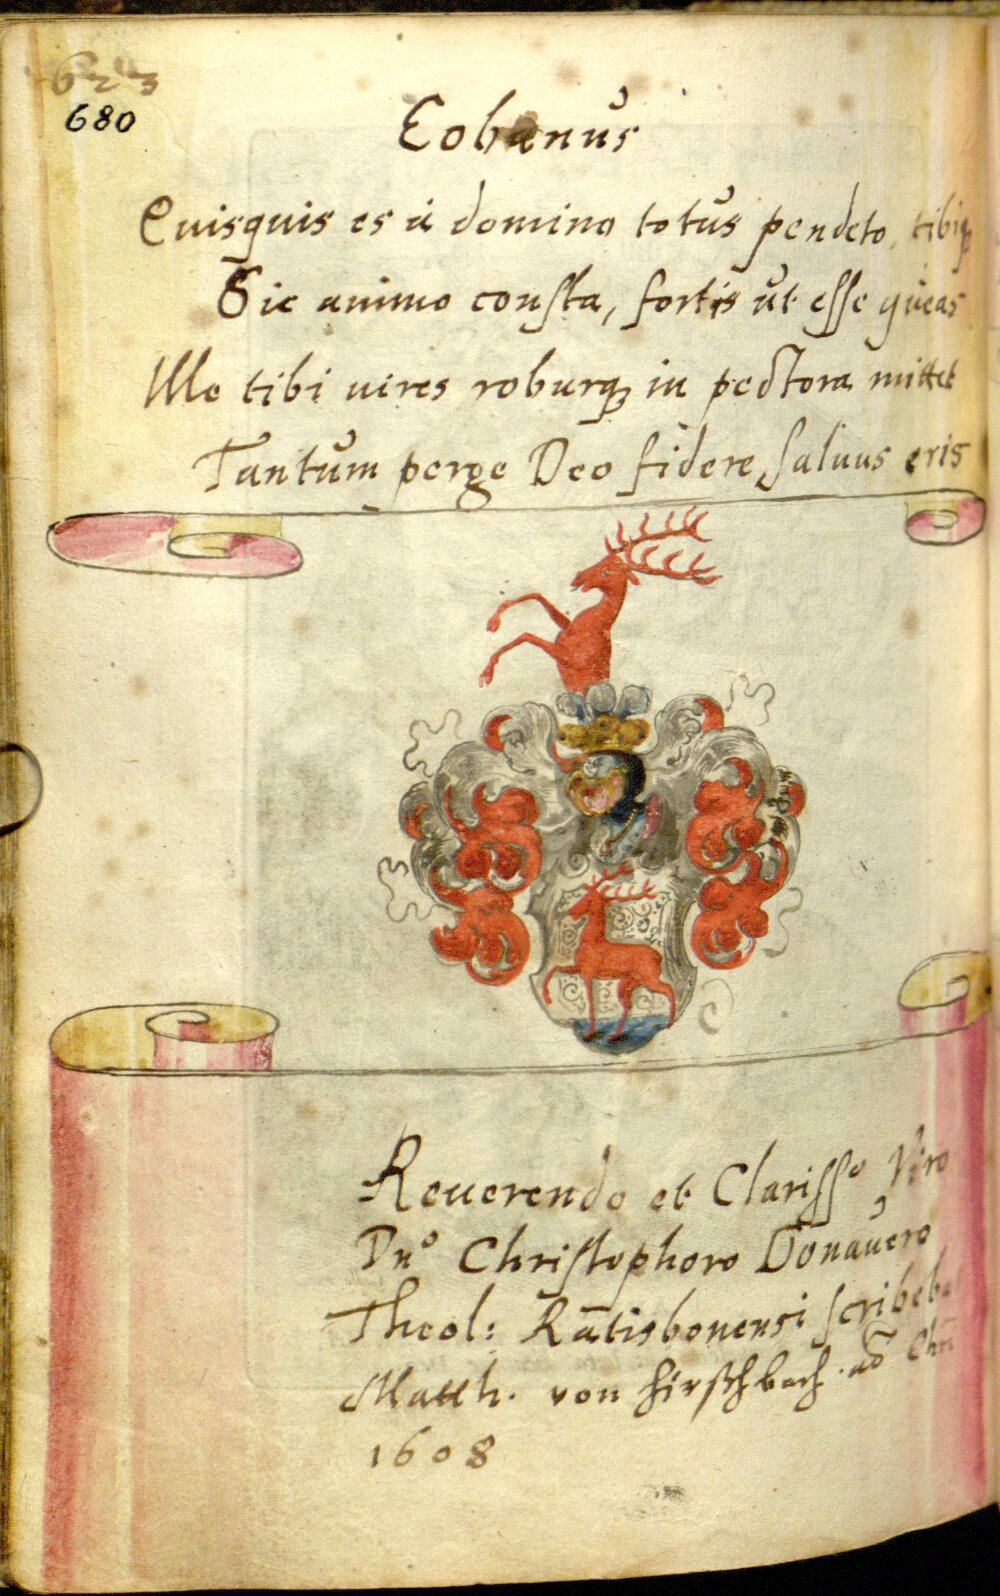 623
680
Eobanus
Quisquis es à domino totus pendeto, tibiq;
Sic animo consta, fortis ut esse queas
Ille tibi vires roburq; in pectora mittet
Tantum perge Deo fidere salvus eris
Reverendo et Clarisso Viro
Dno Christophoro Donauero
Theol: Ratisbonensi scribeba
Matth. von Hirschbach. aõ Chri
1608